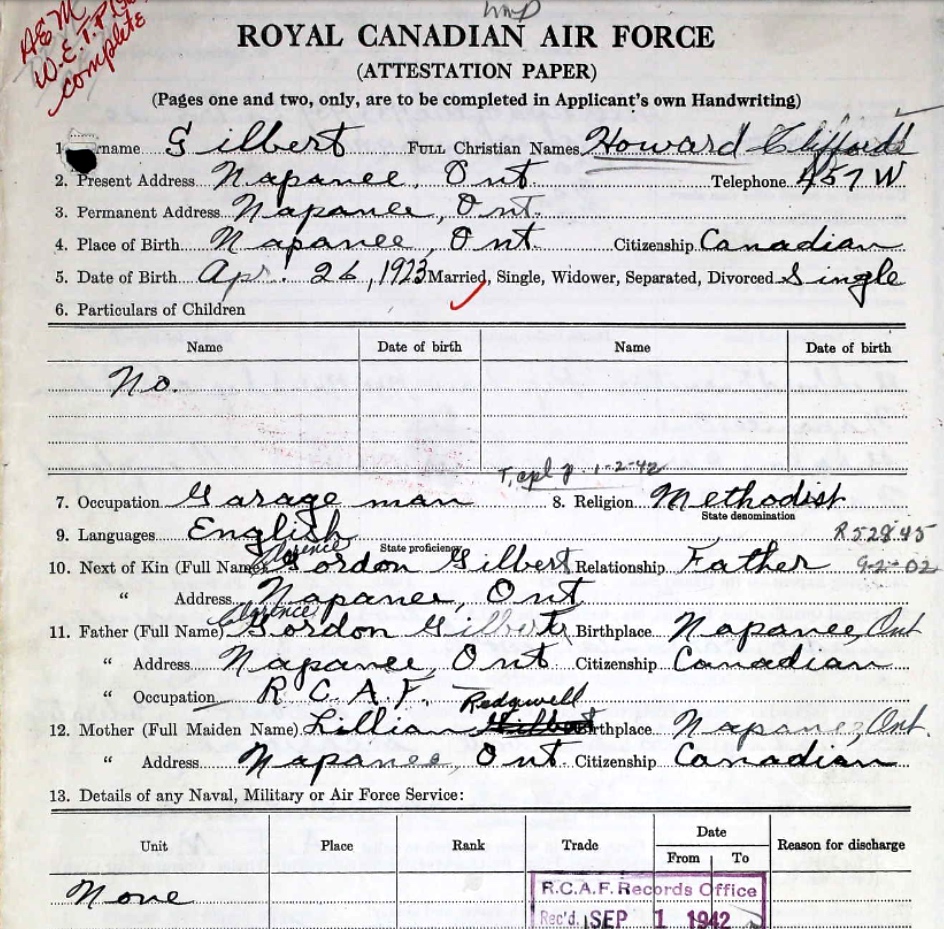 A E M
W. E. T. P.
complete
ROYAL CANADIAN AIR FORCE
(ATTESTATION PAPER)
(Pages one and two, only, are to be completed in Applicant's own Handwriting)
1. rname Gilbert FULL Christian Names Howard Clifford
2. Present Address Napanee, Ont. Telephone 457 W
3. Permanent Address Napanee, Ont.
4. Place of Birth Napanee, Ont. Citizenship Canadian
5. Date of Birth Apr. 26, 1923 Married, Single, Widower, Separated, Divorced Single
6. Particulars of Children
Name Date of birth Name Date of birth
No.
1-2-42
7. Occupation Garage man 8. Religion Methodist
State denomination
9. Languages English R 528.45
State proficiency
Clarence
10. Next of Kin (Full Name) Gordon Gilbert Relationship Father 9-2-02
" Address Napanee, Ont
Clarence
11. Father (Full Name) Gordon Gilbert Birthplace Napanee, Ont
" Address Napanee, Ont Citizenship Canadian
" Occupation R.C.A.F.
Redgwell
12. Mother (Full Maiden Name) Lillian Birthplace Napanee, Ont.
" Address Napanee, Ont. Citizenship Canadian
13. Details of any Naval, Military or Air Force Service:
Unit Place Rank Trade Date Reason for discharge
From To
None
R.C.A.F. Records Office
Rec'd. SEP 1 1942